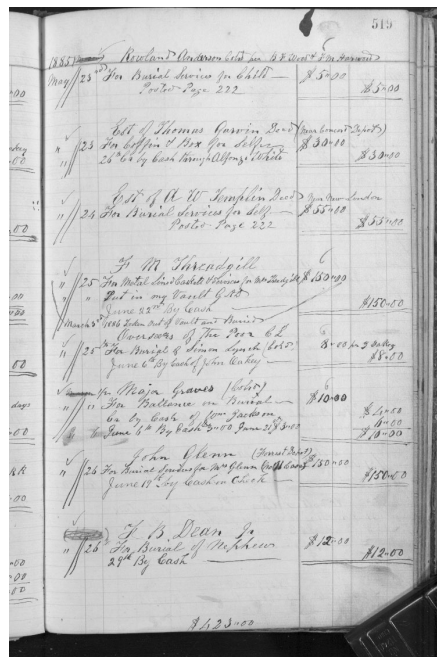 519
1885 Rowland Anderson Cold per B F Wood & F M Harwood
May 23rd For Burial Service for Child $5=00
Posted Page 222 $5=00
Est of Thomas Garvin Decd (Near Concord Depot)
" 23 For Coffin & Box for Self $30=00
" 26th Cr by Cash through Alfonzo White $30=00
Est of A W Templin Decd Near New London
" 24 For Burial Services for Self $55=00
Posted Page 222 $55=00
F M Threadgill
" 25 For Metal Lined Caskett & Services for Mrs Threadgill $150=00
" Put in my Vault
June 22nd By Cash $150=00
March 3rd 1886 Taken Out of Vault and Buried
Overseers of The Poor C L
" 25th For Burial of Simon Lynch (Cold) 8=00 per J Oakey
June 6th By Cash of John Oakey $8=00
Major Graves (Cold)
" " For Ballance on Burial $10=00
Cr by Cash of Jackson
June 6th By Cash 3=00 June 21 $3=00 $10=00
John Glenn (Forest Depot)
" 26 For Burial Services for Mrs Glenn $150=00
June 19th by Cash in Check $150=00
F B Dean Jr
" 26 For Burial of Nephew $12=00
29th By Cash $12=00
$423=00